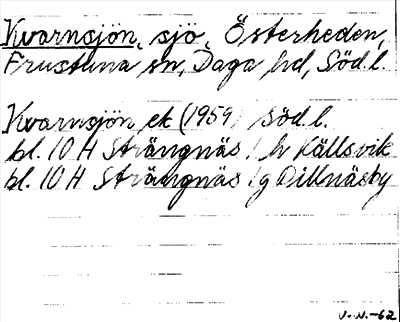 Kvarnsjön, sjö, Österheden,
Frustuna sn, Daga hd, Söd l.
Kvarnsjön ek (1959) Söd l.
bl. 10 H Strängnäs! h Källsvik
bl. 10 H Strängnäs! g Dillnäsby
V.-N.-62